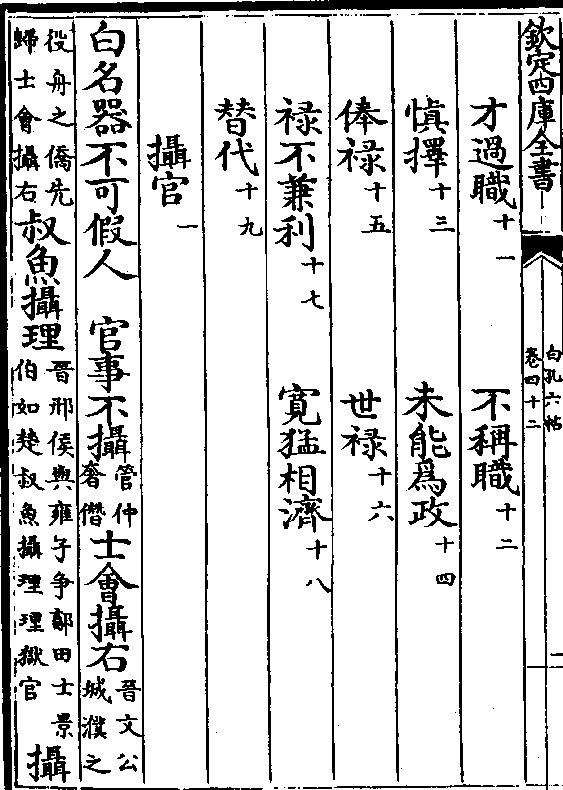 欽定四庫全書
白孔六帖
卷四十二
二
才過職十一　不稱職十二
慎擇十三　未能爲政十四
俸禄十五　世禄十六
禄不兼利十七　寛猛相濟十八
替代十九
攝官一
白名器不可假人　官事不攝管仲奢僭士會攝右晉文公城濮之
役舟之僑先歸士會攝右叔魚攝理晉邢侯與雍子争鄐田士景伯如楚叔魚攝理理獄官攝